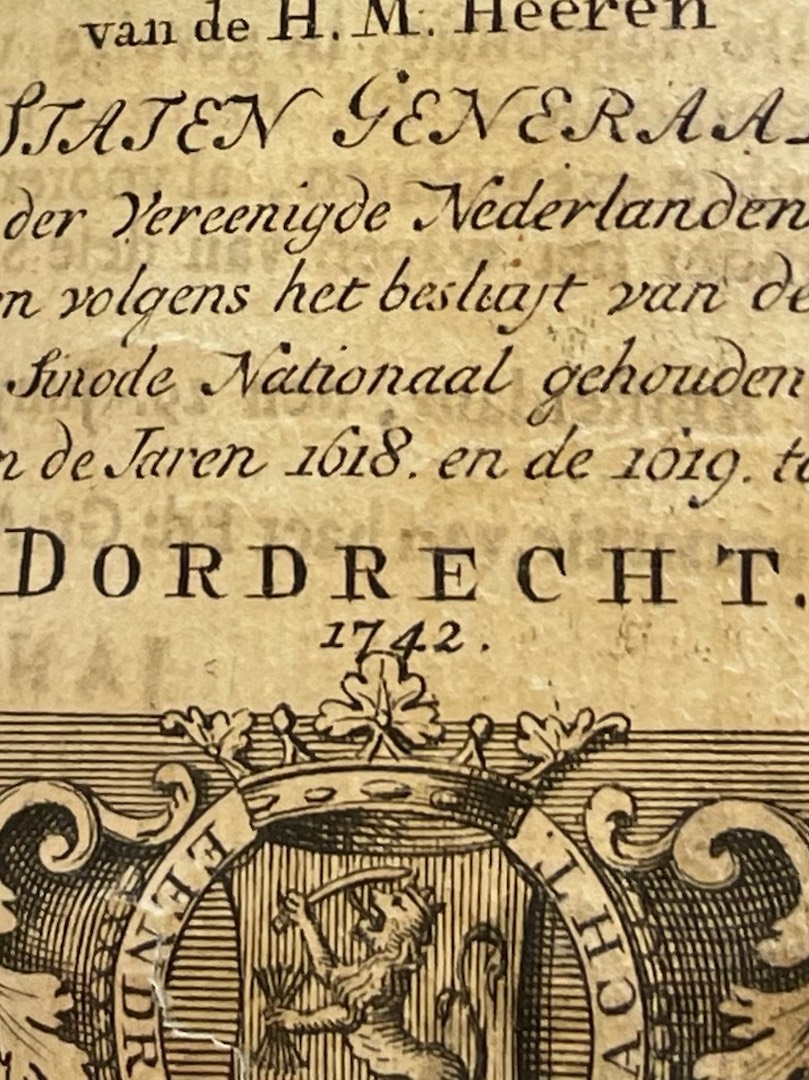 van de H. M. Heeren
STATEN GENERAAL
der Vereenigde Nederlanden
en volgens het besluijt van de
Sinode Nationaal gehouden
in de Jaren 1618. en de 1619. to
DORDRECHT.
1742.
EENDR
ACHT